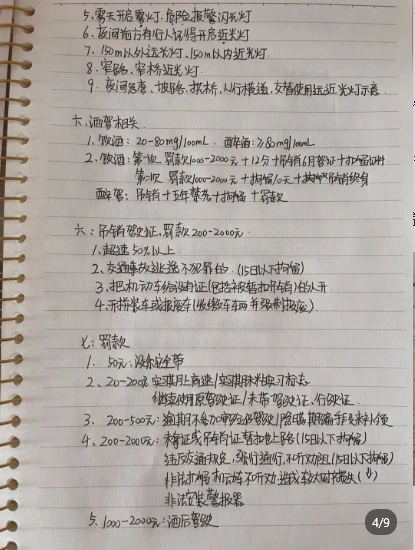 5、雾天开启雾灯,危险报警闪光灯
6、夜间前方有行人记得开近光灯
7、150m以外远光灯、150m以内近光灯.
8、窄路、窄桥近光灯
9、夜间弯道、坡路、拱桥、人行横道,交替使用远近光灯示意
六、酒驾相关
1、饮酒:20-80mg/100mL 醉酒:≥80mg/100mL
2、饮酒:第一次 罚款1000-2000元+12分+吊销6月驾证
第二次 罚款1000-2000元+拘留10天+吊销
醉驾:吊销+五年禁考+拘留+罚款
六:吊销驾驶证,罚款200-2000元.
1、超速50%以上
2、交通事故逃逸不犯罪的.(15日以下拘留)
3、把机动车给没驾证(包括被暂扣吊销)的人开
4、开拼装车或报废车(收缴车车辆并强制报废)
七:罚款
1、50元:没系安全带
2、20-200元 实习期上高速/实习期未粘实习标志
继续使用原驾驶证/未带驾驶证、行驶证.
3、200-500元:逾期不参加审验仍驾驶/隐瞒
4、200-2000元:未拿证或吊销证暂扣上路(15日以下拘留)
违反交通规定,强行通行,不听劝阻(15日以下拘留)
非法拦
非法安装警报器
5、1000-2000元:酒后驾驶
4/9